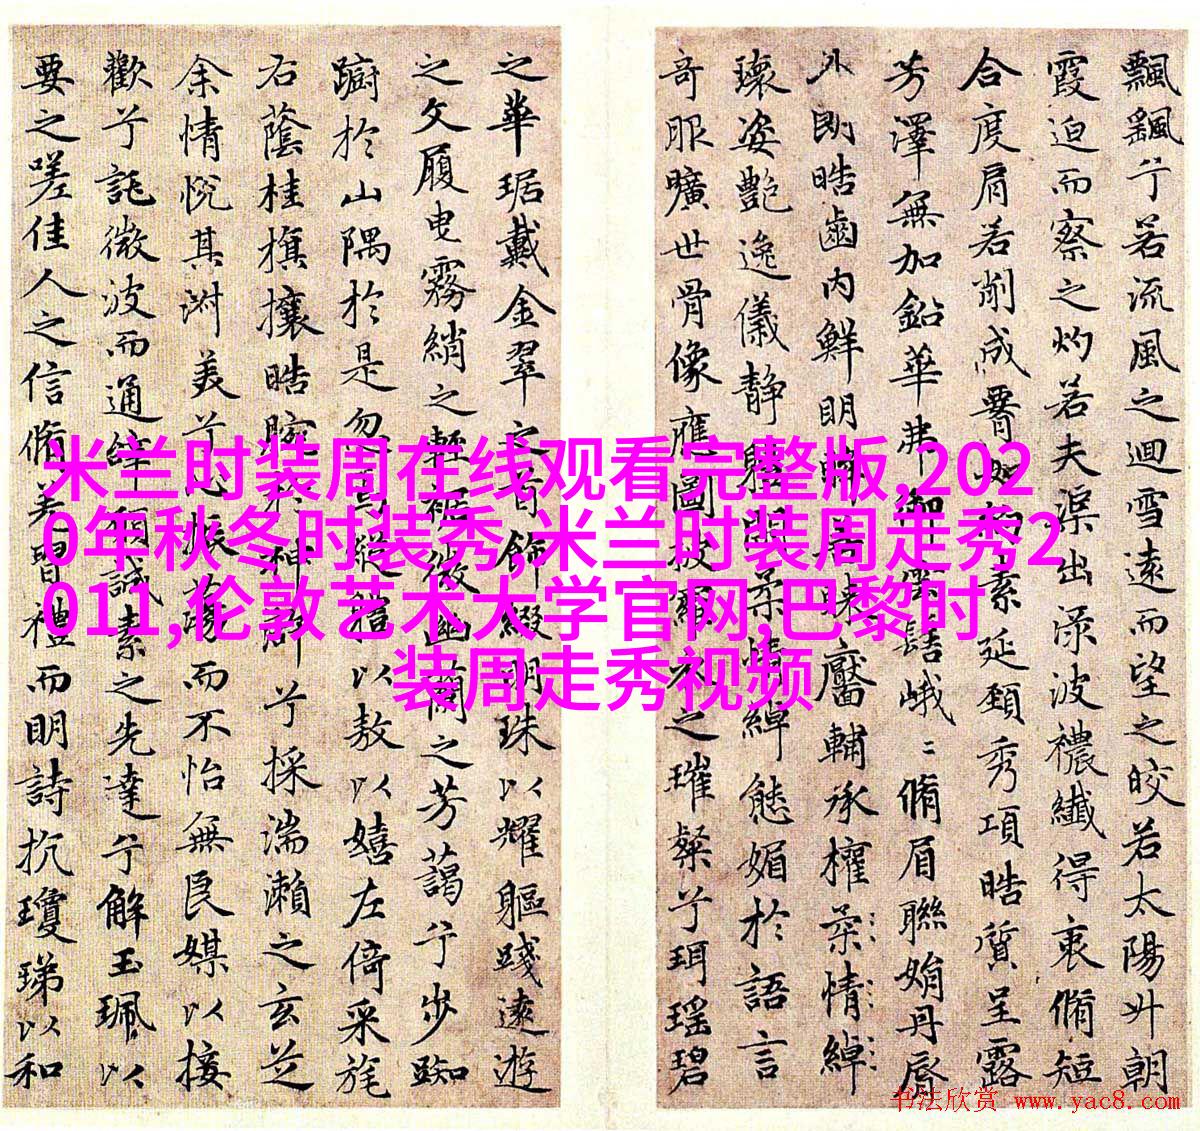 飄飄兮若流風之迴雪遠而望之皎若太陽升朝
霞迫而察之灼若夫渠出渌波襛纖得衷脩短
合度肩若削成如約素延頸秀項皓質呈露
芳澤無加鉛華弗御雲髻峨〻脩眉聯娟丹脣
外朗皓齒内鮮明眸善睞靨輔承權柔情綽
瓌姿艷逸儀靜體閑柔情綽態媚於語言
奇服曠世骨像應圖披羅衣之璀粲兮珥瑶碧
之華琚戴金翠之首飾綴明珠以耀軀踐遠遊
之文履曳霧綃之輕裾微幽蘭之芳藹兮步踟
蹰於山隅於是忽焉縱體以敖以嬉左倚采旄
右蔭桂旗攘皓腕於神滸兮採湍瀨之玄芝
余情悅其淑美兮心振蕩而不怡無良媒以接
歡兮託微波而通辭願誠素之先達兮解玉珮以
要之嗟佳人之信脩羌習禮而明詩抗瓊珶以和
米兰时装周在线观看完整版,202
0年秋冬时装秀,米兰时装周走秀2
011,伦敦艺术大学官网,巴黎时
装周走秀视频
书法欣赏 www.yac8.com